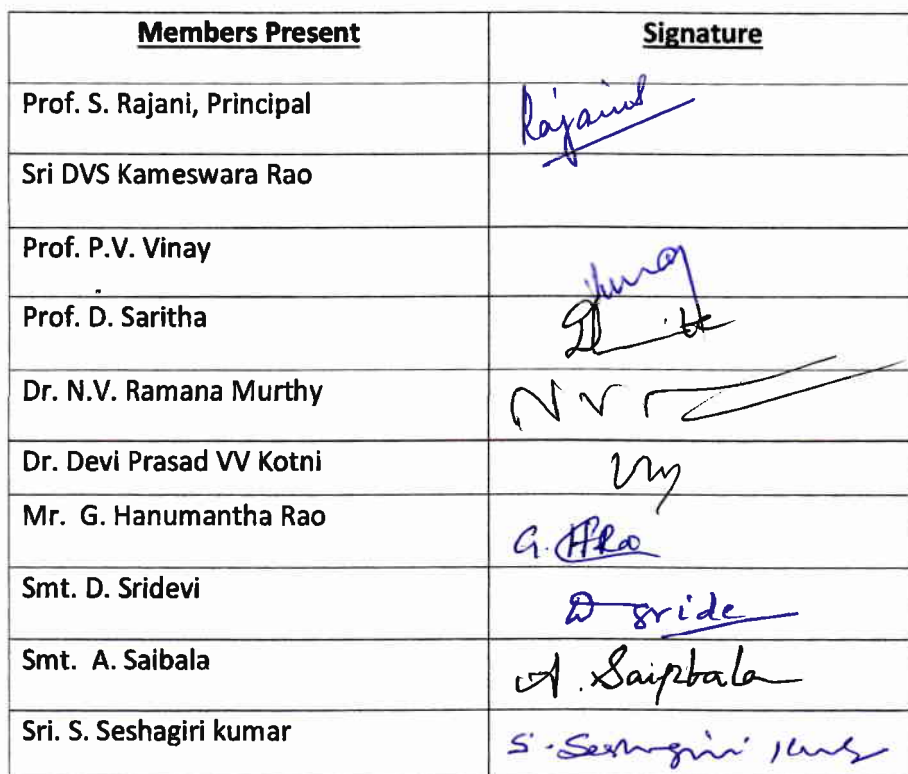 Members Present Signature
Prof. S. Rajani, Principal Rajani
Sri DVS Kameswara Rao
Prof. P.V. Vinay
Prof. D. Saritha
Dr. N.V. Ramana Murthy N V
Dr. Devi Prasad VV Kotni
Mr. G. Hanumantha Rao G. HRao
Smt. D. Sridevi D sride
Smt. A. Saibala A. Saibala
Sri. S. Seshagiri kumar S. Seshagiri